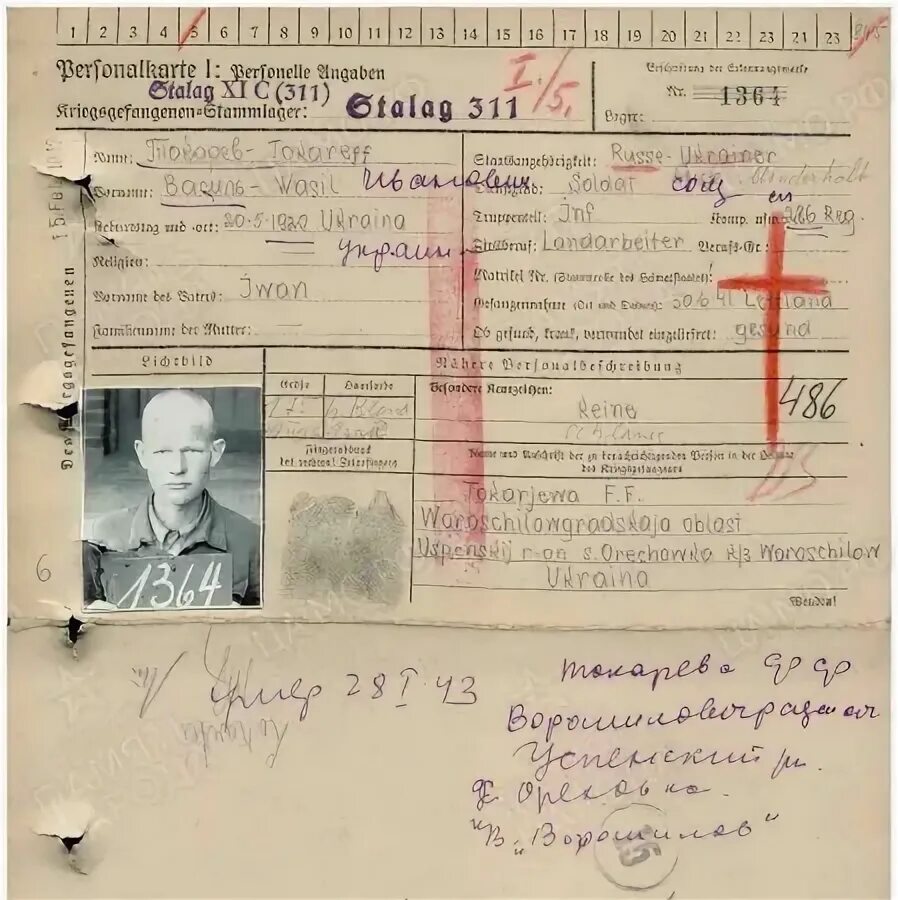 1 2 3 4 5 6 7 8 9 10 11 12 13 14 15 16 17 18 19 20 21 22 23 24 25
Personalkarte I: Personelle Angaben
Stalag XI C (311)
Kriegsgefangenen-Stammlager: Stalag 311
I./5.
Nr. 1364
Name: Токарев - Tokareff
Staatsangehörigkeit: Russe - Ukrainer
Vorname: Василь - Wasil Иванович
Dienstgrad: Soldat солд
Geburtstag und -ort: 20.5.1920 Ukraina
Truppenteil: Inf Komp. usw. 286 Reg.
украин
Religion:
Zivilberuf: Landarbeiter Berufs-Gr.:
Vorname des Vaters: Iwan
Matrikel Nr. (Stammrolle des Heimatstaates):
Gefangennahme (Ort und Datum): 30.6.41 Lettland
Familienname der Mutter:
Ob gesund, krank, verwundet eingeliefert: gesund
Des Kriegsgefangenen
Lichtbild
Nähere Personalbeschreibung
Größe Haarfarbe
Besondere Kennzeichen:
Keine
486
Fingerabdruck
des rechten Zeigefingers
Name und Anschrift der zu benachrichtigenden Person in der Heimat
des Kriegsgefangenen
Tokarjewa F.F.
Waroschilowgradskaja oblast
Uspenskij r-on s. Orechowka k/z Woroschilow
Ukraina
1364
6
Wenden!
Умер 28 I 43
Токарева Ф Ф
Успенский рн.
Ореховка.
"Ворошилов"